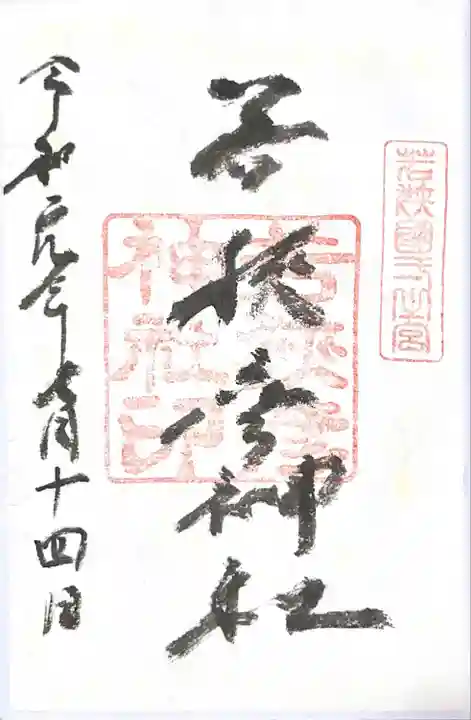 若狭國一之宮
若狭彦神社
若狭彦
神社印
令和元年七月十四日